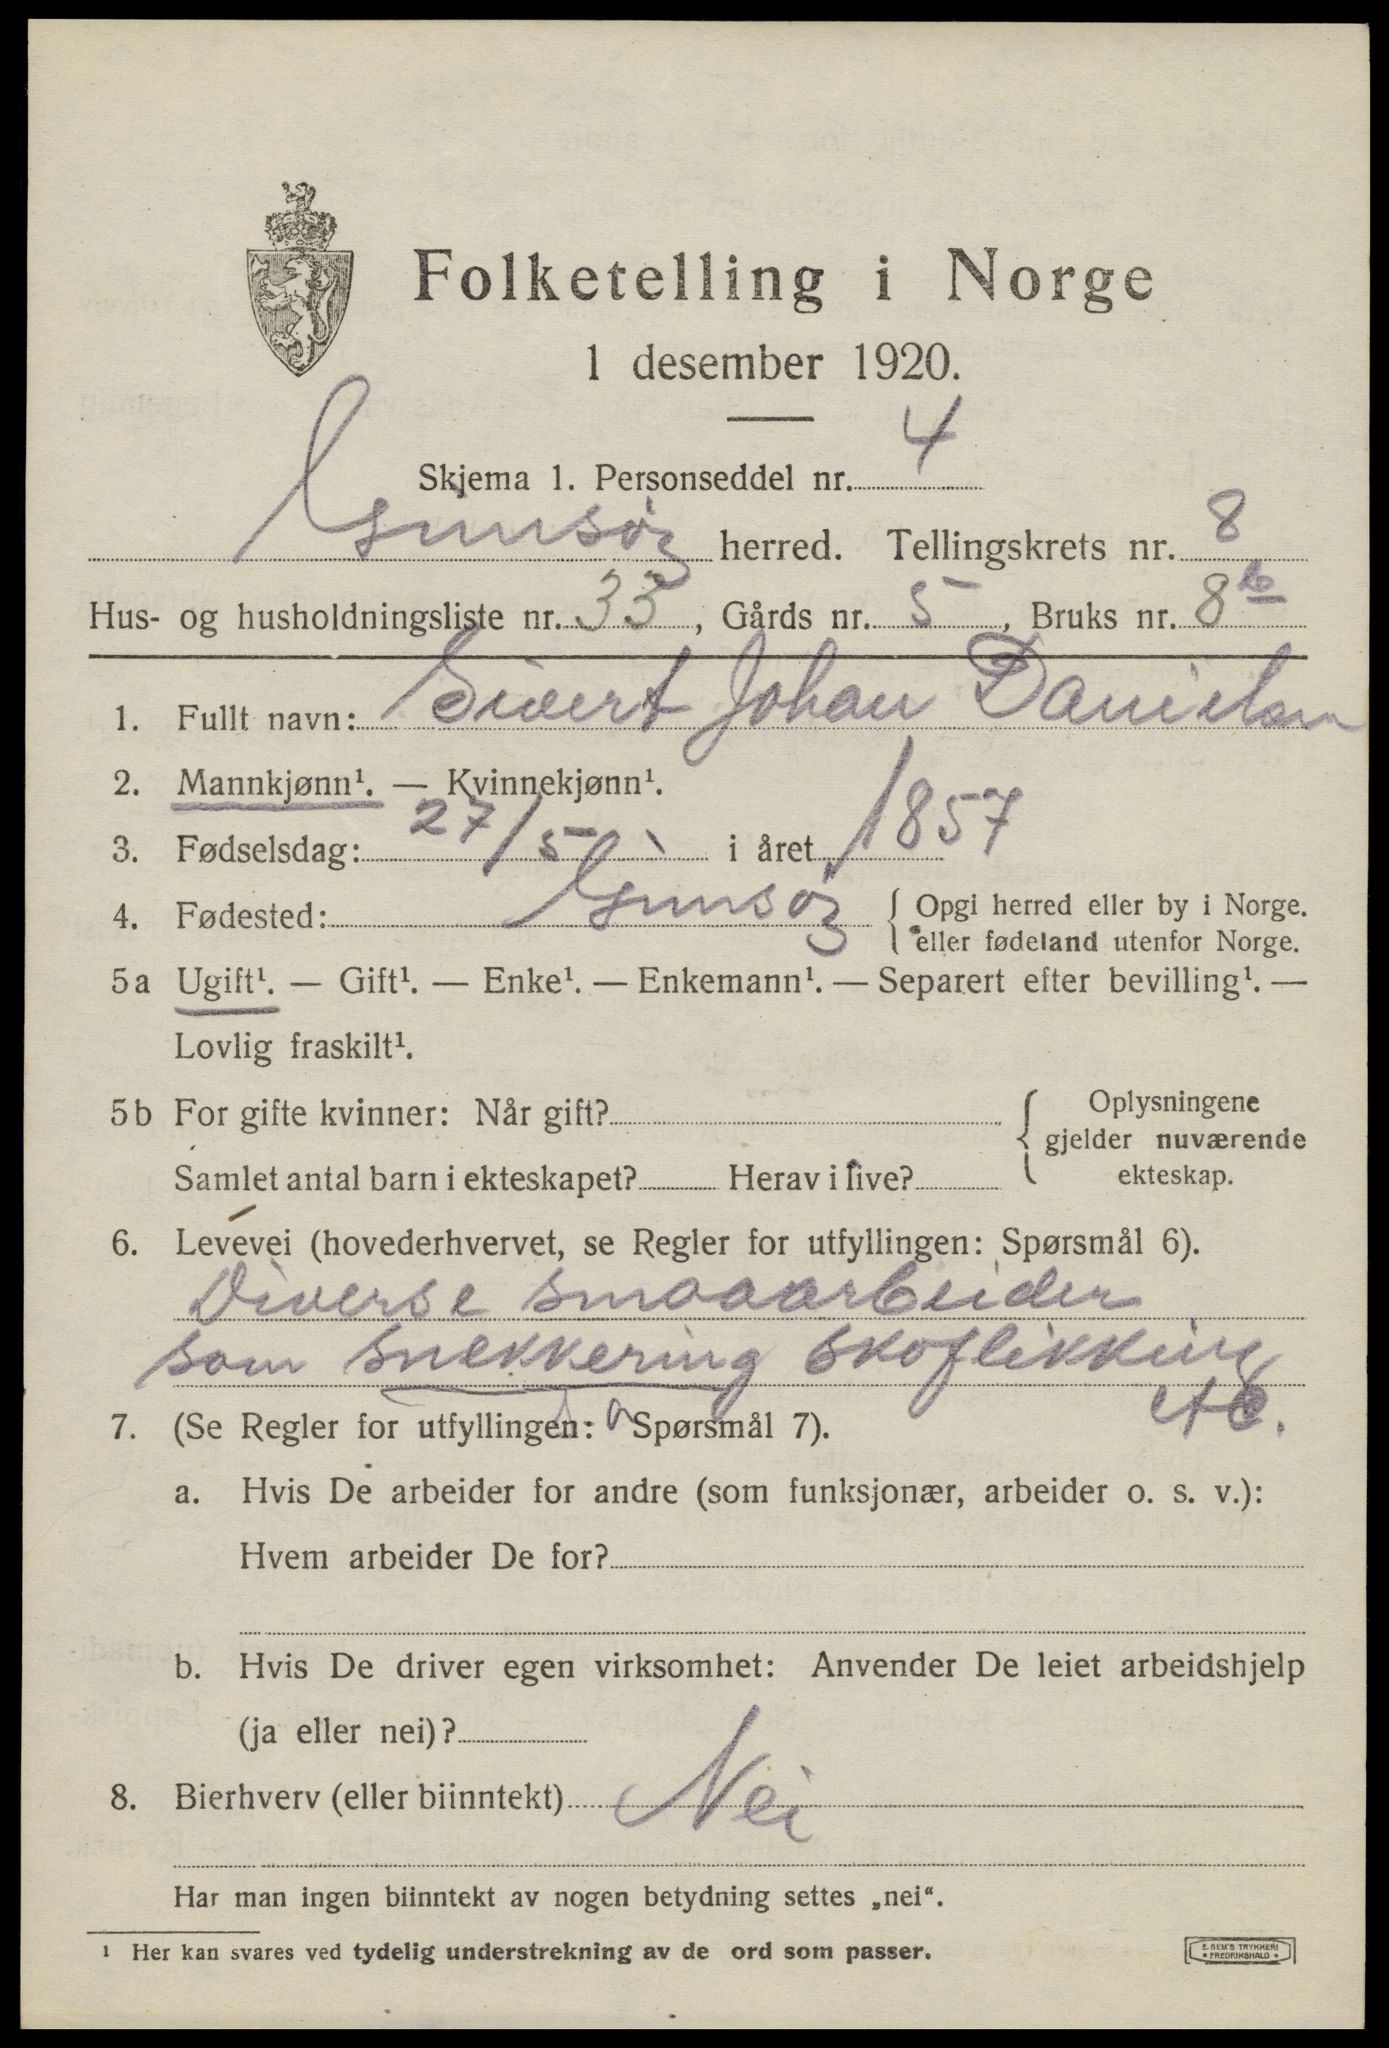 Folketelling i Norge
1 desember 1920.
Skjema 1. Personseddel nr. 4
Gimsøy herred. Tellingskrets nr. 8
Hus- og husholdningsliste nr. 33, Gårds nr. 5, Bruks nr. 8b
1. Fullt navn: Sivert Johan Danielsen
2. Mannkjønn¹. — Kvinnekjønn¹.
3. Fødselsdag: 27/5 i året 1857
4. Fødested: Gimsøy { Opgi herred eller by i Norge.
eller fødeland utenfor Norge.
5a Ugift¹. — Gift¹. — Enke¹. — Enkemann¹. — Separert efter bevilling¹. —
Lovlig fraskilt¹.
5b For gifte kvinner: Når gift? { Oplysningene
gjelder nuværende
Samlet antal barn i ekteskapet? Herav i live? ekteskap.
6. Levevei (hovederhvervet, se Regler for utfyllingen: Spørsmål 6).
Diverse smaaarbeider
som snekkering skoflikking
etc.
7. (Se Regler for utfyllingen: Spørsmål 7).
a. Hvis De arbeider for andre (som funksjonær, arbeider o. s. v.):
Hvem arbeider De for?
b. Hvis De driver egen virksomhet: Anvender De leiet arbeidshjelp
(ja eller nei)?
8. Bierhverv (eller biinntekt) Nei
Har man ingen biinntekt av nogen betydning settes „nei“.
¹ Her kan svares ved tydelig understrekning av de ord som passer.
E. SEM'S TRYKKERI
• FREDRIKSHALD •